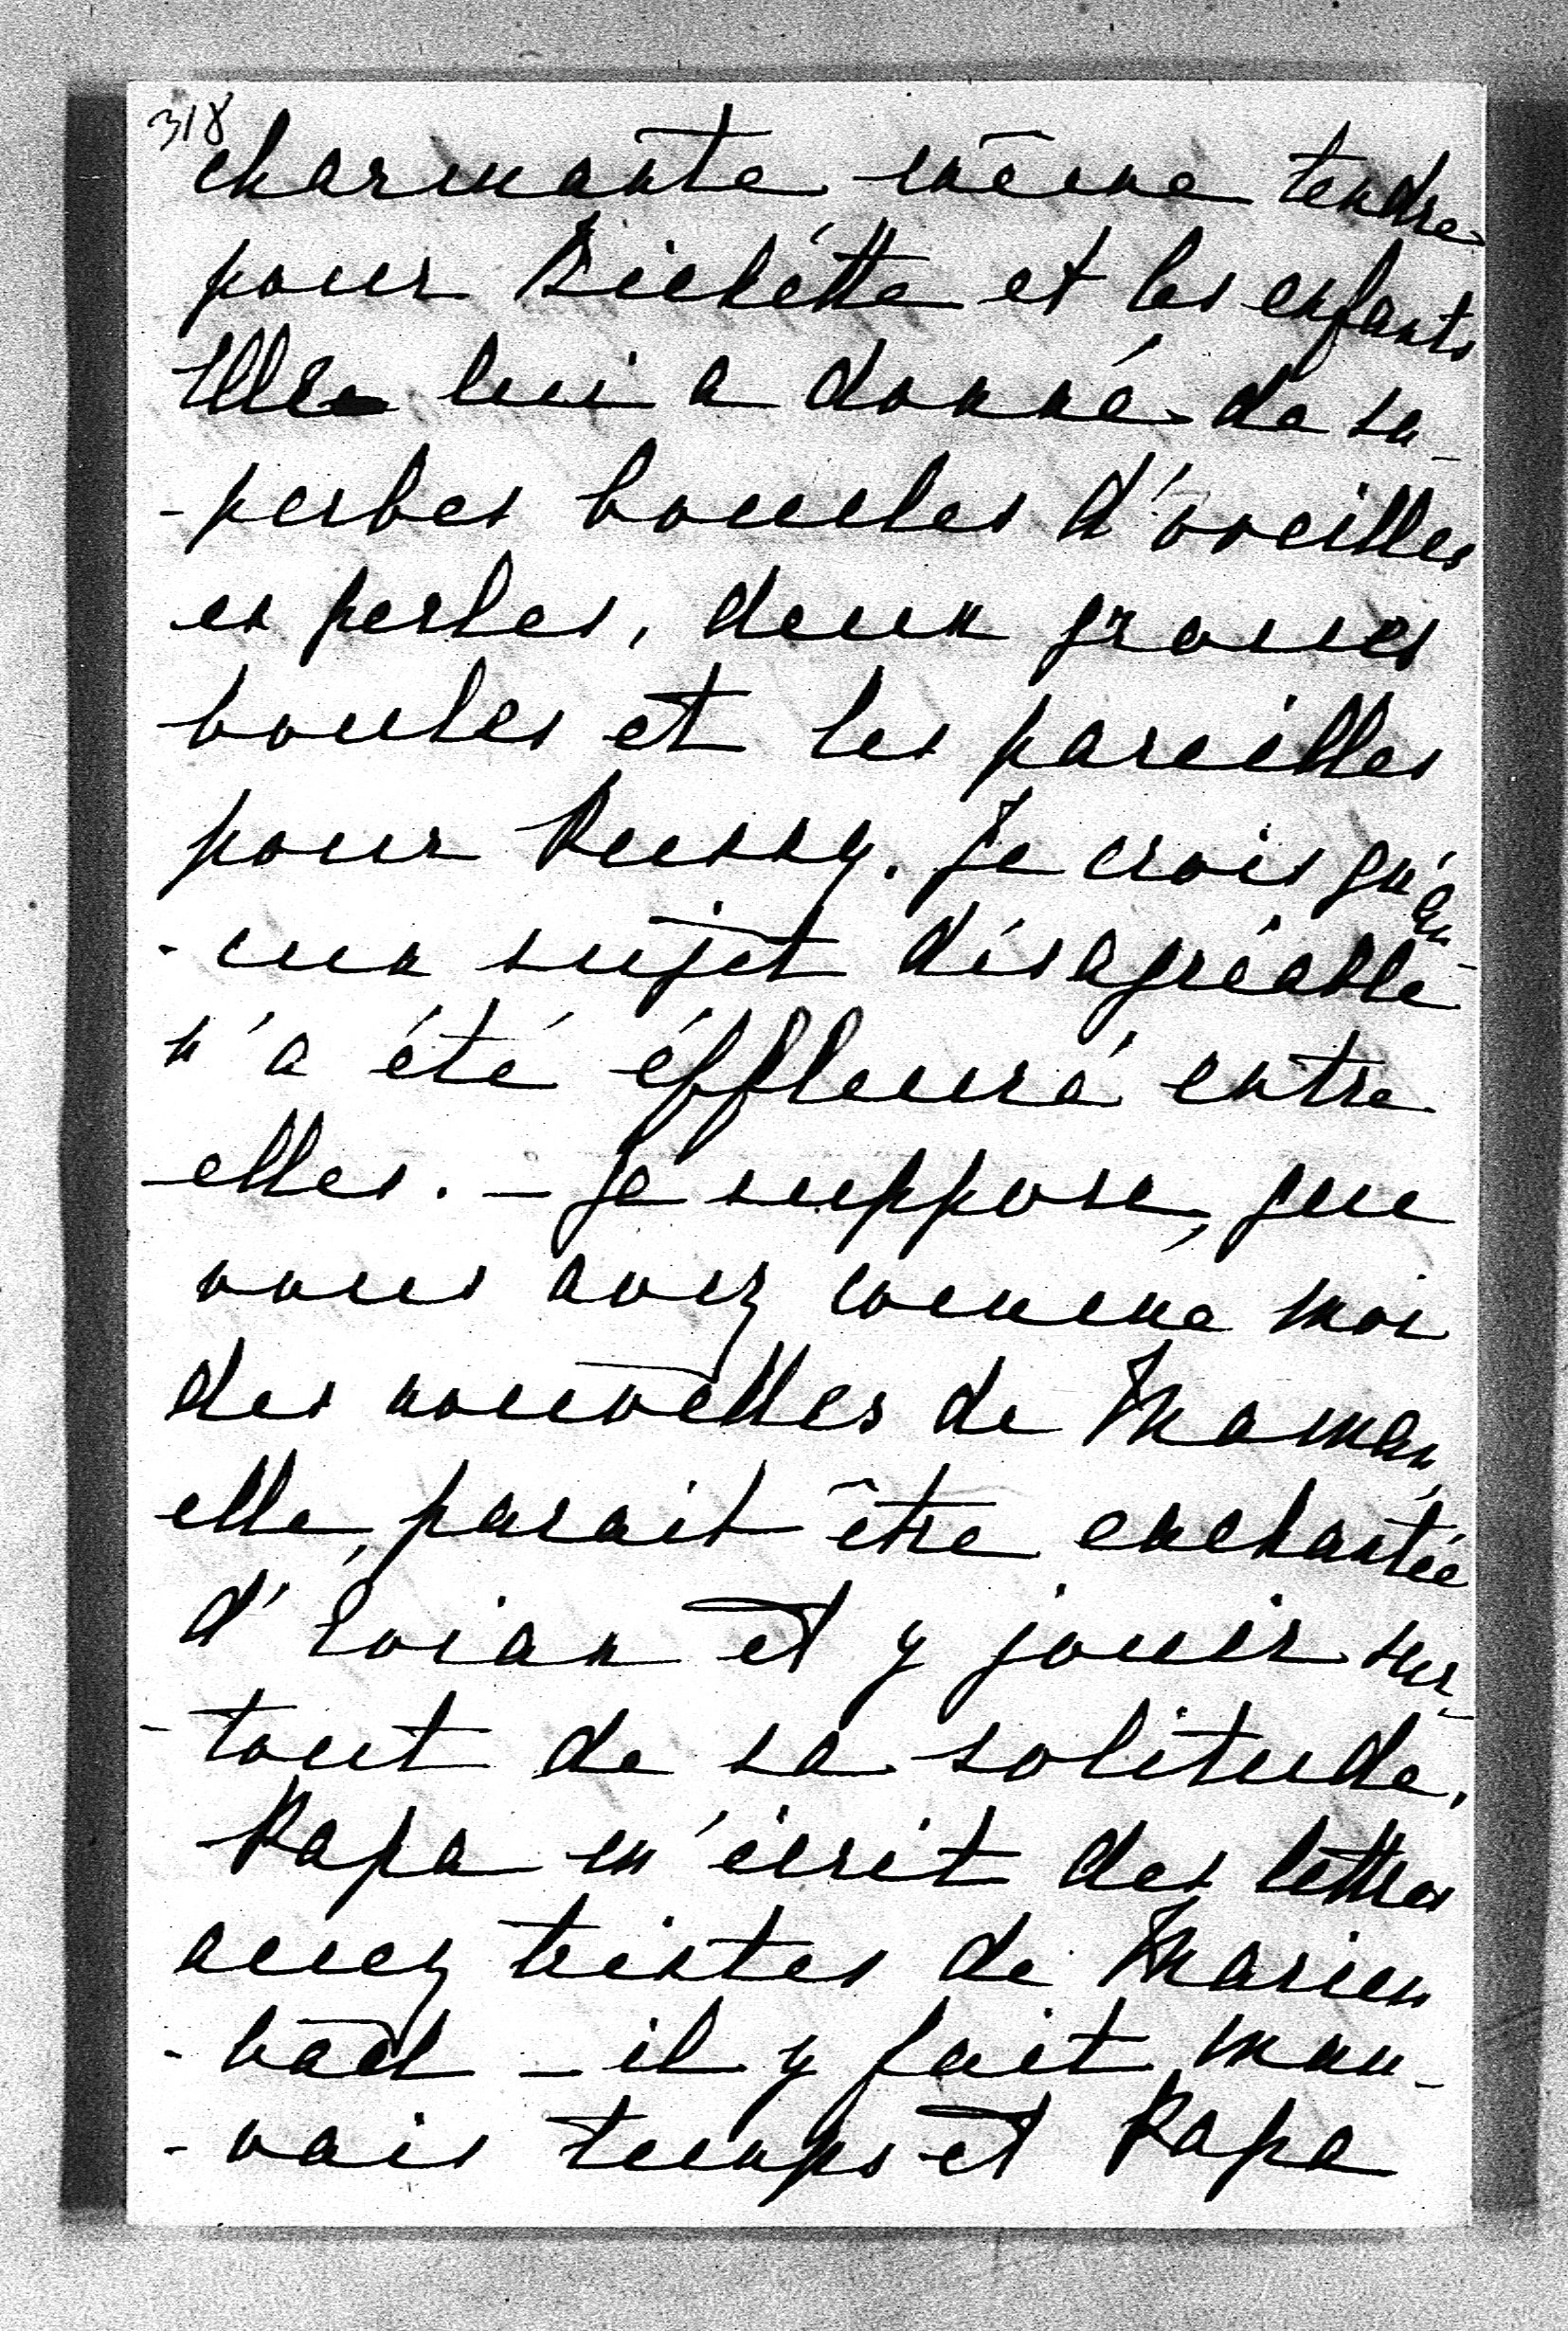 318
charmante même tendre
pour Bichétte et les enfants
Elle lui a donné de su-
-perbes boucles d'oreilles
en perles, deux grosses
boules et les pareilles
pour Pussy. Je crois qu'au-
-cun sujet désagréable
n'a été éffleuré entre
elles. – Je suppose, que
vous avez comme moi
des nouvelles de Maman,
elle, parait être enchantée
d'Evian et y jouir sur-
-tout de sa solitude.
Papa m'écrit des lettres
assez tristes de Marien
-bad – il y fait mau-
-vais temps et Papa